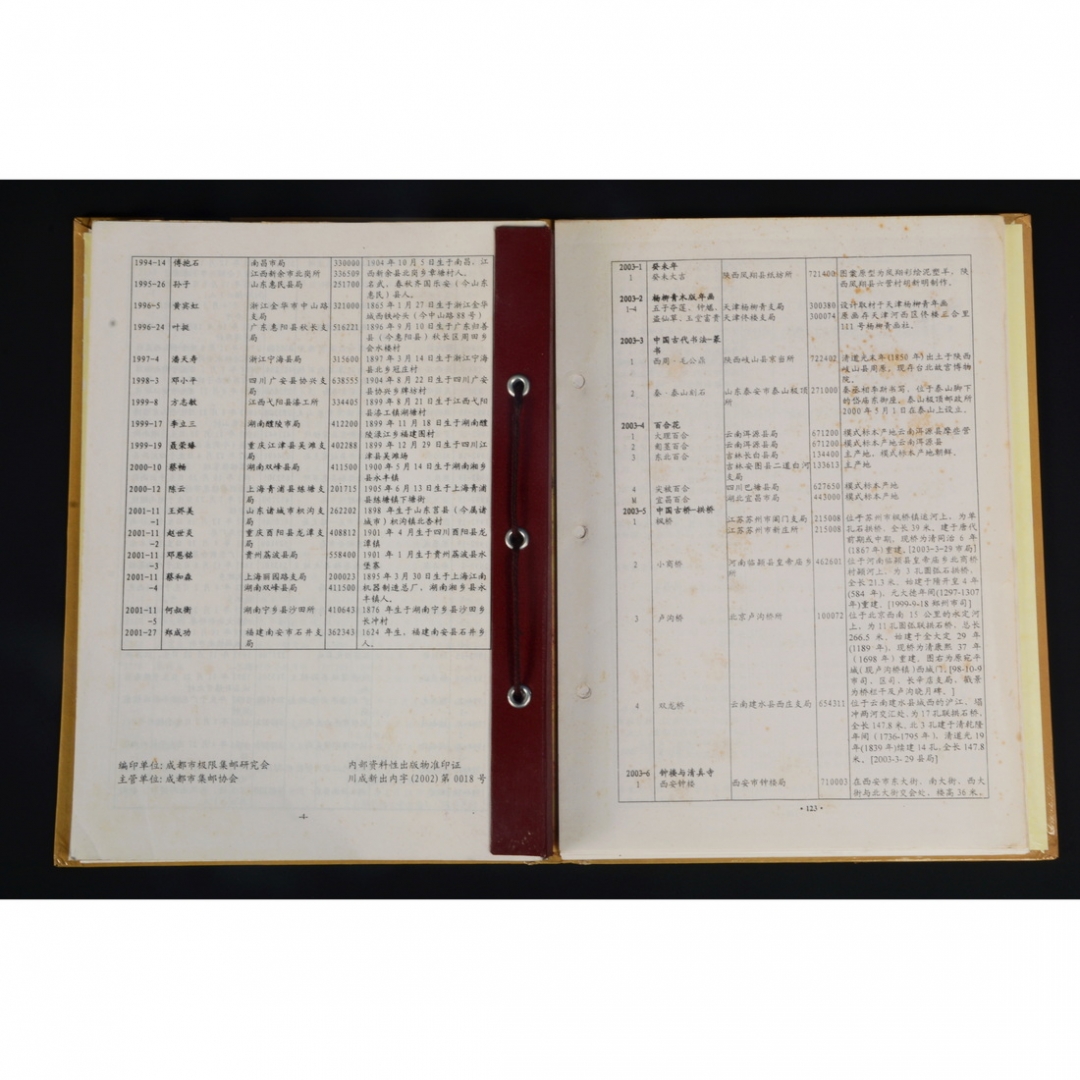 1994-14 傅抱石 南昌市局 330000 1904年10月5日生于南昌，江
江西新余市北岗所 336509 西新余县北岗乡章塘村人。
1995-26 孙子 山东惠民县局 251700 名武，春秋齐国乐安（今山东
惠民）县人。
1996-5 黄宾虹 浙江金华市中山路 321000 1865年1月27日生于浙江金华
支局 城西铁岭头（今中山路88号）
1996-24 叶挺 广东惠阳县秋长支 516221 1896年9月10日生于广东归善
局 县（今惠阳县）秋长区周田乡
会水楼村
1997-4 潘天寿 浙江宁海县局 315600 1897年3月14日生于浙江宁海
县北乡冠庄村
1998-3 邓小平 四川广安县协兴支 638555 1904年8月22日生于四川广安
局 县协兴乡牌坊村
1999-8 方志敏 江西弋阳县漆工所 334405 1899年8月21日生于江西弋阳
县漆工镇湖塘村
1999-17 李立三 湖南醴陵市局 412200 1899年11月18日生于湖南醴
陵渌江乡福建围村
1999-19 聂荣臻 重庆江津县吴滩支 402288 1899年12月29日生于四川江
局 津县吴滩场
2000-10 蔡畅 湖南双峰县局 411500 1900年5月14日生于湖南湘乡
县永丰镇
2000-12 陈云 上海青浦县练塘支 201715 1905年6月13日生于上海青浦
局 县练塘镇下塘街
2001-11 王烬美 山东诸城市枳沟支 262202 1898年生于山东莒县（今属诸
-1 局 城市）枳沟镇北杏村
2001-11 赵世炎 重庆酉阳县龙潭支 408812 1901年4月生于四川酉阳县龙
-2 局 潭镇
2001-11 邓恩铭 贵州荔波县局 558400 1901年1月生于贵州荔波县水
-3 堡寨
2001-11 蔡和森 上海丽园路支局 200023 1895年3月30日生于上海江南
-4 湖南双峰县局 411500 机器制造总厂，湖南湘乡县永
丰镇人。
2001-11 何叔衡 湖南宁乡县沙田所 410643 1876年生于湖南宁乡县沙田乡
-5 长冲村
2001-27 郑成功 福建南安市石井支 362343 1624年生，福建南安县石井乡
局 人。
编印单位: 成都市极限集邮研究会 内部资料性出版物准印证
主管单位: 成都市集邮协会 川成新出内字(2002)第0018号
-4-
2003-1 癸未年
1 癸未大吉 陕西凤翔县纸坊所 721400 图案原型为凤翔彩绘泥塑羊，陕
西凤翔县六营村胡新明制作。
2003-2 杨柳青木版年画
1-4 五子夺莲、钟馗、 天津杨柳青支局 300380 设计取材于天津杨柳青年画
盗仙草、玉堂富贵 天津佟楼支局 300074 原画存天津河西区佟楼三合里
111号杨柳青画社。
2003-3 中国古代书法-篆
书
1 西周·毛公鼎 陕西岐山县京当所 722402 清道光末年(1850年)出土于陕西
岐山县周原，现存台北故宫博物
院。
2 秦·泰山刻石 山东泰安市泰山极顶 271000 秦丞相李斯书写，位于泰山脚下
所 的岱庙东御座，泰山极顶邮政所
2000年5月1日在泰山上设立。
2003-4 百合花
1 大理百合 云南洱源县局 671200 模式标本产地云南洱源县
2 匍茎百合 云南洱源县局 671200 模式标本产地云南洱源县
3 东北百合 吉林长白县局 134400 主产地，模式标本产地朝鲜。
吉林安图县二道白河 133613 主产地
支局
4 尖被百合 四川巴塘县局 627650 模式标本产地
M 宜昌百合 湖北宜昌市局 443000 模式标本产地
2003-5 中国古桥-拱桥
1 枫桥 江苏苏州市阊门支局 215008 位于苏州市枫桥镇运河上，为单
江苏苏州市新庄所 215008 孔石拱桥，全长39米，建于唐代
前期或中期，现桥为清同治6年
(1867年)重建。[2003-3-29市局]
2 小商桥 河南临颍县皇帝庙乡 462601 位于河南临颍县皇帝庙乡北商桥
所 村颍河上，为3孔圆弧石拱桥，
全长21.3米，始建于隋开皇4年
(584年)，元大德年间(1297-1307
年)重建。[1999-9-18郑州市司]
3 卢沟桥 北京卢沟桥所 100072 位于北京西南15公里的永定河
上，为11孔圆弧联拱石桥，总长
266.5米，始建于金大定29年
(1189年)，现桥为清康熙37年
(1698年)重建，图右为原宛平
城(现卢沟桥镇)西城门。[98-10-9
市司、区司、长辛店支局，戳景
为桥栏干及卢沟晓月碑。]
4 双龙桥 云南建水县西庄支局 654311 位于云南建水县城西的泸江、塌
冲两河交汇处，为17孔联拱石桥，
全长147.8米，北3孔建于清乾隆
年间(1736-1795年)，清道光19
年(1839年)续建14孔，全长147.8
米。[2003-3-29县局]
2003-6 钟楼与清真寺
1 西安钟楼 西安市钟楼局 710003 在西安市东大街、南大街、西大
街与北大街交会处，楼高36米。
·123·